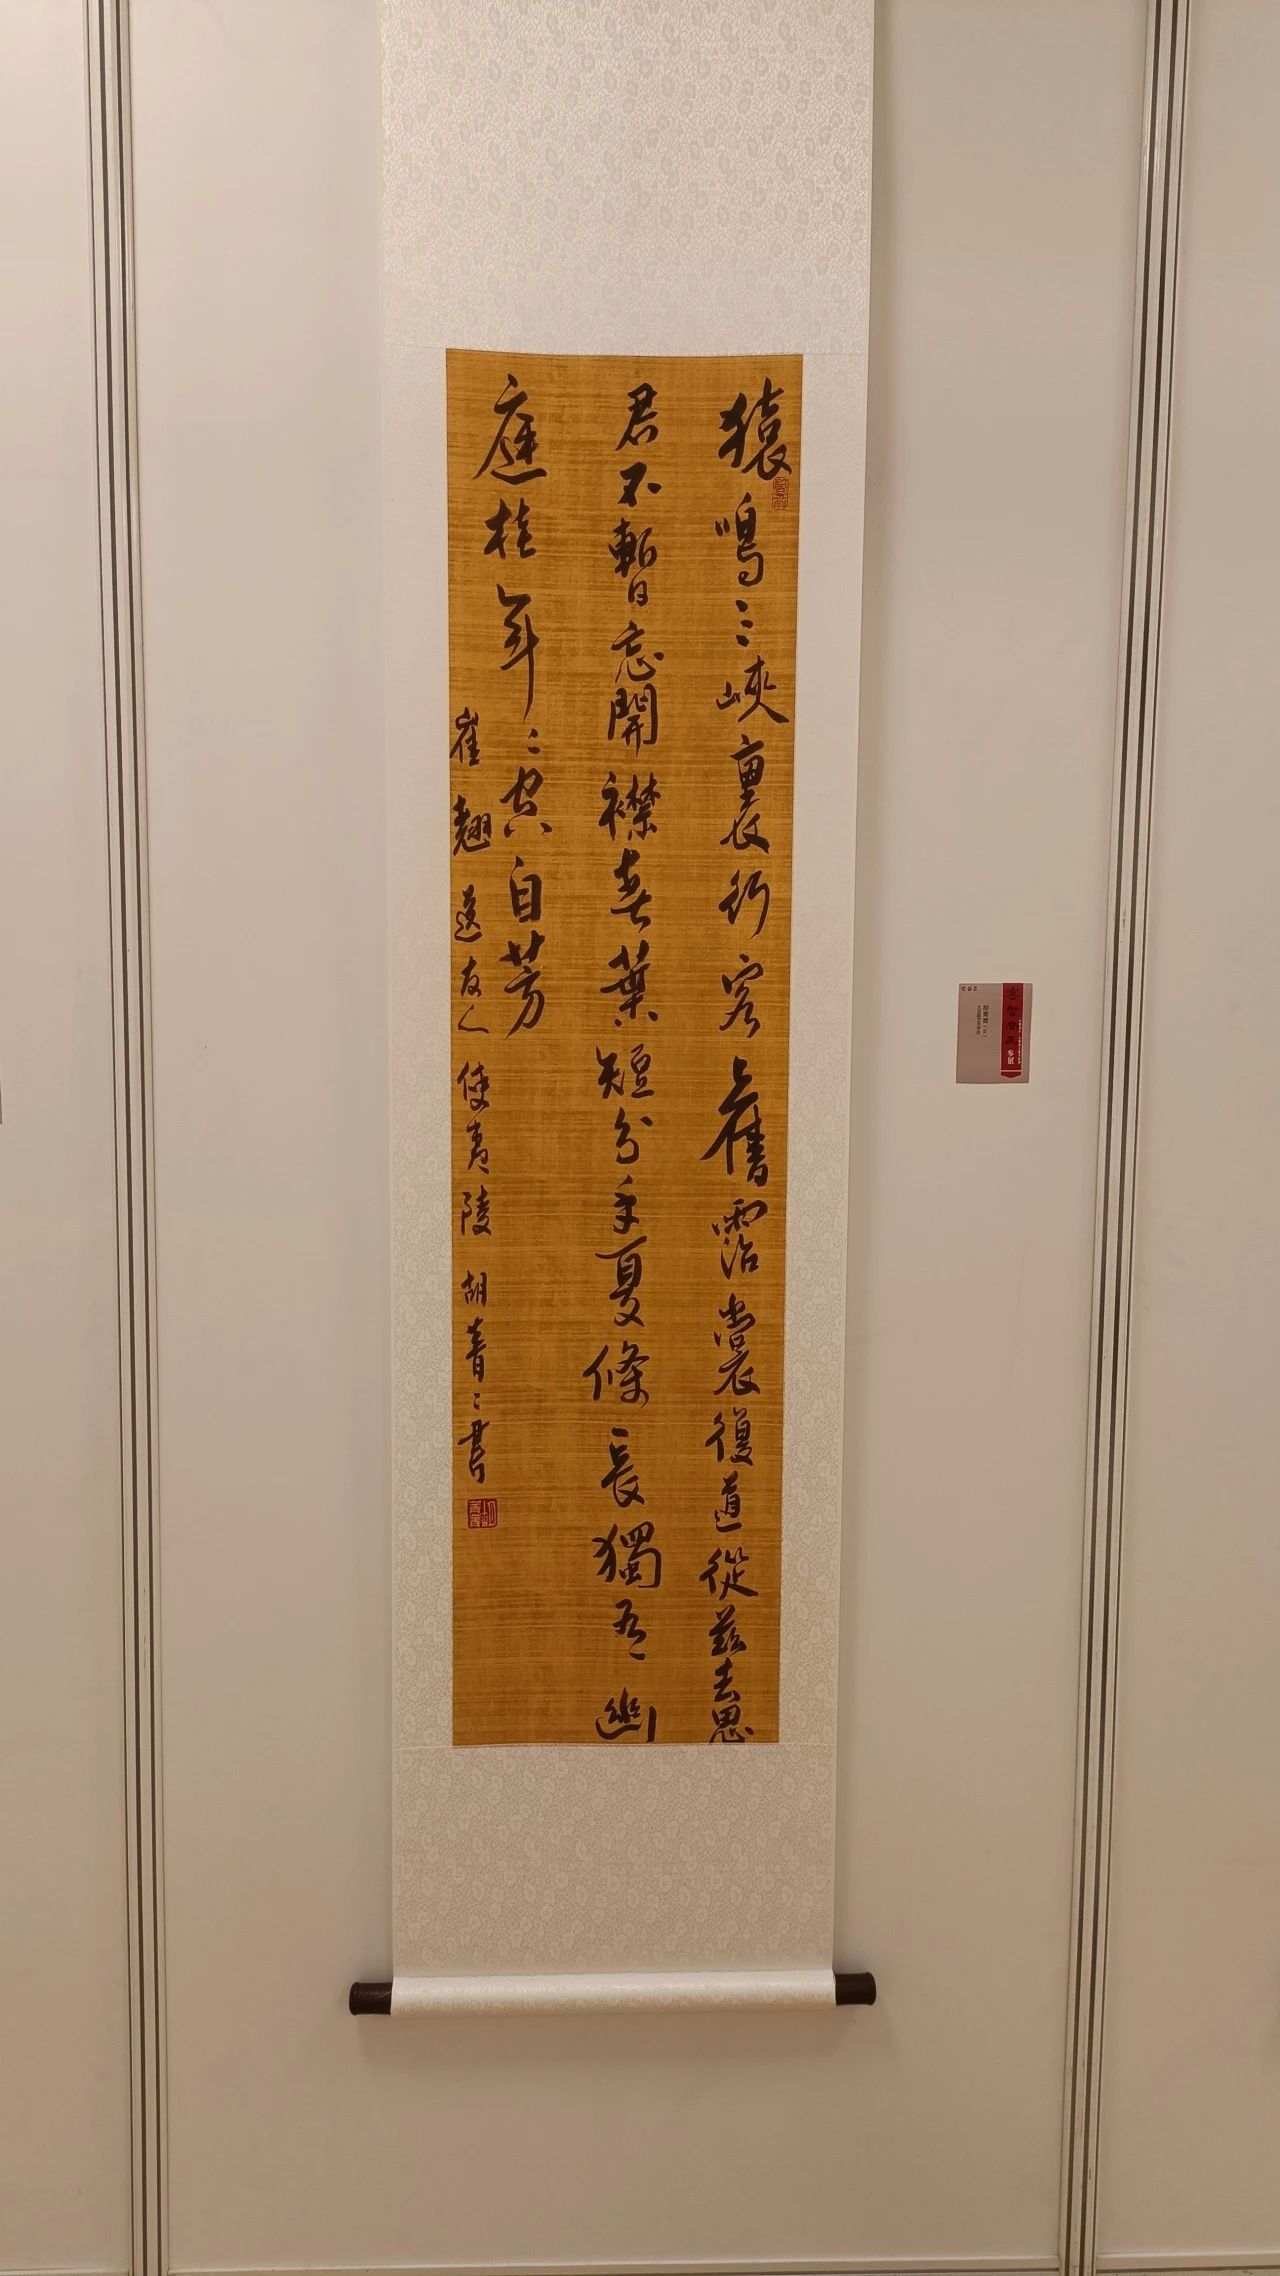 猿鳴三峽裏行客舊霑裳復道從茲去思
君不暫忘開襟春葉短分手夏條長獨有幽
庭桂年〻空自芳
崔翹送友人使夷陵 胡青〻書